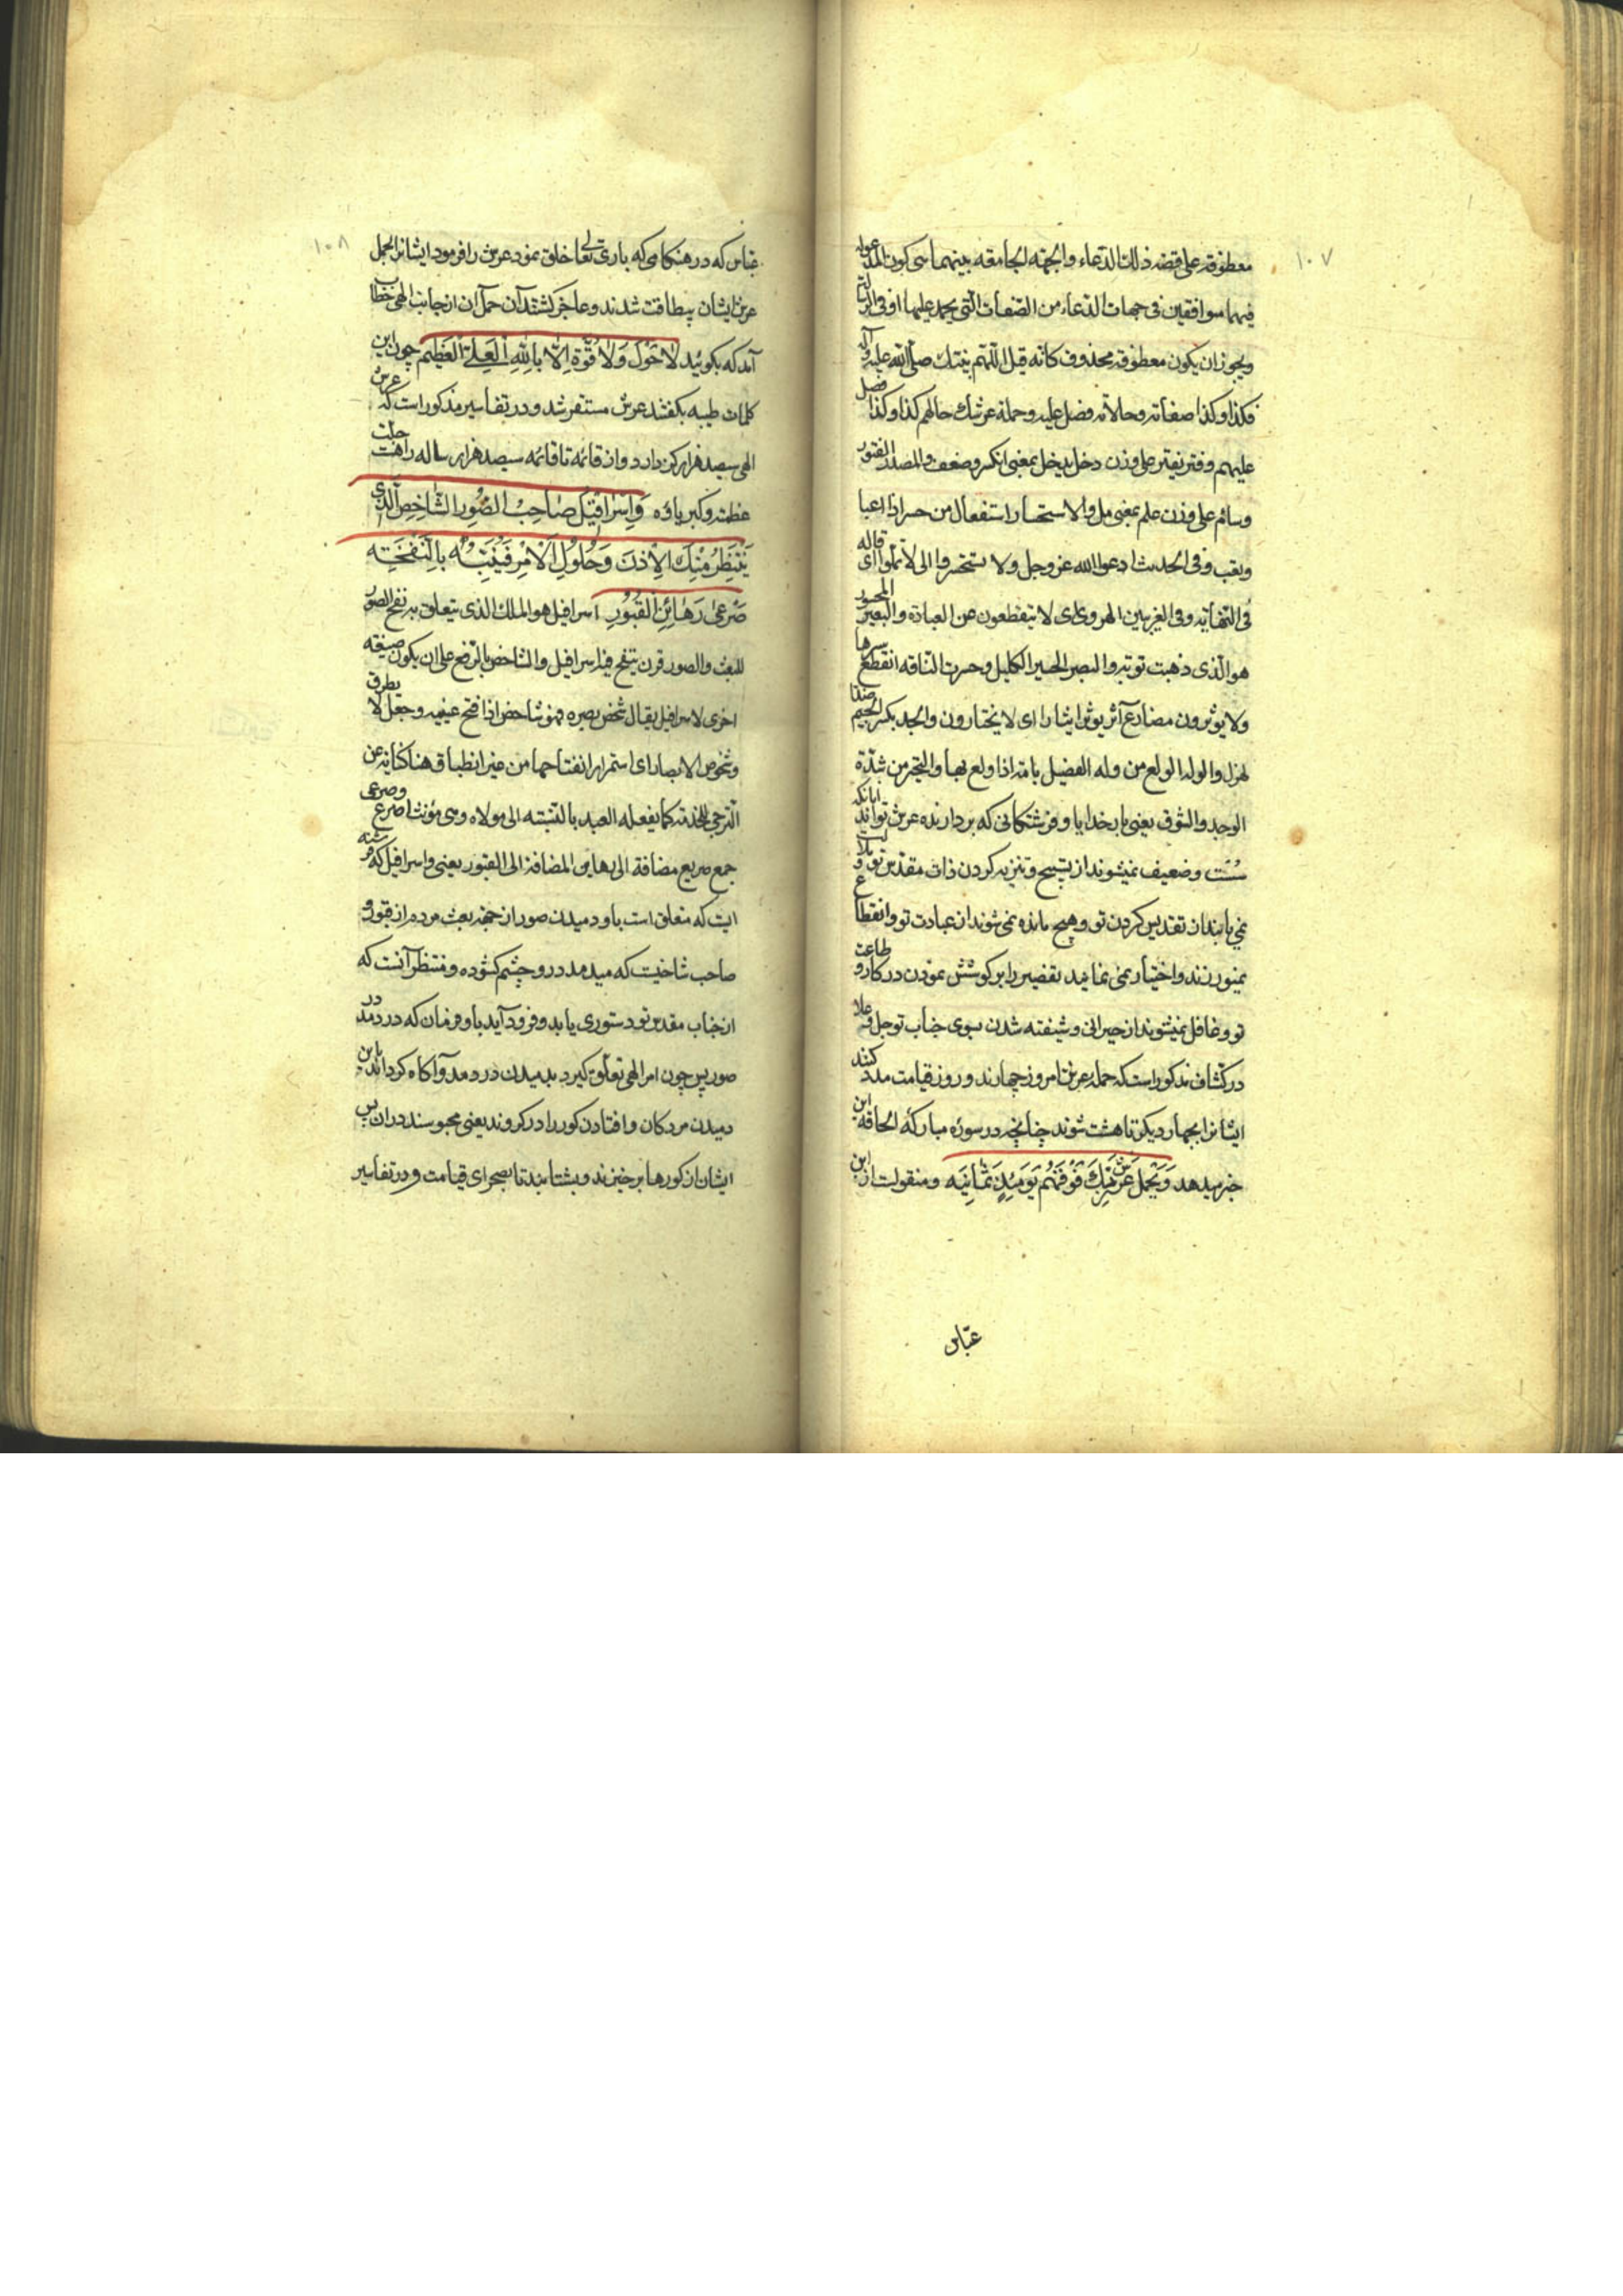 ۱۰۷
معطوفة علی قصه ذلك الدعاء والجهة الجامعه بینهما سی کون المدعوله
فیهما موافقین فی جهات الدعاء من الصفات التی یحمد علیها او فی
ویجوز ان یکون معطوفة محذوف کانه قیل اللهم نبیك صلی الله علیه وآله
فکذا وکذا صفاته وحالاته فصل علیه وحملة عرشك حالهم کذا وکذا فصل
علیهم وفتر یفتر علی وزن دخل یدخل بمعنی انکسر وضعف والمصدر الفتور
وسائم علی وزن علم بمعنی مل والاستحسار استفعال من حسر اذا اعیا
وتعب وفی الحدیث ادعوا الله عز وجل ولا تستحسروا ای لا تملوا قاله
فی النهایه وفی الغریبین الهروی ای لا ینقطعون عن العبادة والبعیر المحسور
هو الذی ذهبت قوته والبصر الحسیر الکلیل وحسرت الناقه انقطع سیرها
ولا یؤثرون مضارع آثر یوثر ایثارا ای لا یختارون والجد بکسر الجیم ضد
لهزل والوله الولع من وله الفصیل بامه اذا ولع بها والتحیر من شدة
الوجد والشوق یعنی بار خدایا و فرشتکانی که بردارنده عرش تواند آنانکه
سست وضعیف نمیشوند از تسبیح و تنزیه کردن ذات مقدس تو و
نمی یابند از تقدیس کردن تو و هیچ مانده نمی شوند از عبادت تو و انقطاع
نمیورزند و اختیار نمی نمایند تقصیر را بر کوشش نمودن در کار و طاعت
تو و غافل نمیشوند از حیرانی و شیفته شدن بسوی جناب تو جل و علا
در کشاف مذکور است که حمله عرش امروز چهارند و روز قیامت مدد کنند
ایشانرا بچهار دیکر تا هشت شوند چنانچه در سوره مبارکه الحاقه این
خبر میدهد وَیَحْمِلُ عَرْشَ رَبِّكَ فَوْقَهُمْ یَوْمَئِذٍ ثَمَانِیَه و منقولست از ابن
عباس
۱۰۸
عباس که در هنکامی که باری تعالی خلق نمود عرش را فرمود ایشانرا بحمل
عرش ایشان بیطاقت شدند و عاجز کشتند از حمل آن از جانب الهی خطاب
آمد که بکوئید لَا حَوْلَ وَلَا قُوَّةَ اِلَّا بِاللّٰهِ الْعَلِیِّ الْعَظِیمِ چون این
کلمات طیبه بکفتند عرش مستقر شد و در تفاسیر مذکور است که عرش
الهی سیصد هزار رکن دارد و از قائمه تا قائمه سیصد هزار ساله راهست جلت
عظمته وکبریاؤه وَاِسْرَافِیلُ صَاحِبُ الصُّورِ الشَّاخِصُ الَّذِی
یَنْتَظِرُ مِنْكَ الْاِذْنَ وَحُلُولَ الْاَمْرِ فَیُنَبِّهُ بِالنَّفْخَةِ
صَرْعٰی رَهَائِنِ الْقُبُورِ اسرافیل هو الملك الذی یتعلق به نفخ الصور
للبعث والصور قرن ینفخ فیه اسرافیل والشاخص بالرفع علی ان یکون صفة
اخری لاسرافیل یقال شخص بصره فهو شاخص اذا فتح عینیه وجعل لا یطرق
وشخوص الابصار ای استمرار انفتاحها من غیر انطباق هنا کنایه عن
الترجی للخدمة کما یفعله العبد بالنسبته الی مولاه وصرعی
جمع صریع مضافة الی رهاین المضافة الی القبور یعنی و اسرافیل که فرشته
ایست که متعلق است باو دمیدن صور از جهة بعث مرده از قبور و
صاحب شاخیست که میدمد درو چشم کشوده و منتظر آنست که
از جناب مقدس تو دستوری یابد و فرود آید باو فرمان که در دمد در
صور پس چون امر الهی تعلق کیرد بدمیدن در دمد و آکاه کرداند باین
دمیدن مردکان و افتادن کور را در کروند یعنی محبوسند در آن پس
ایشان از کورها برخیزند و بشتابند تا بصحرای قیامت و در تفاسیر